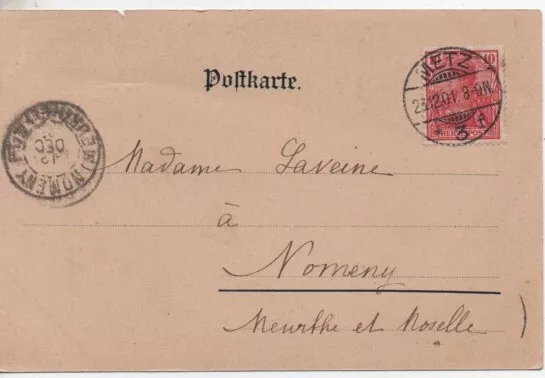 Postkarte.
METZ
10
23.12.01. 8-9N.
* 3 f
REICHSPOST
NOMENY
DEC
12
Madame Laveine
à
Nomeny
Meurthe et Moselle